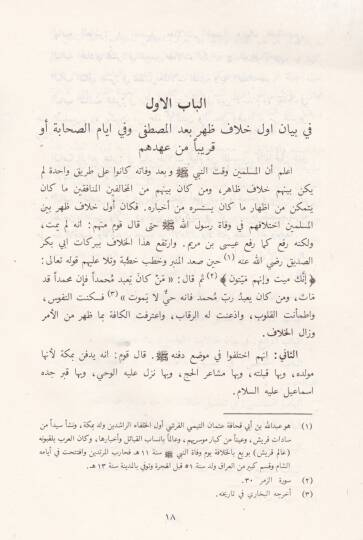 الباب الاول
في بيان اول خلاف ظهر بعد المصطفى وفي ايام الصحابة أو
قريباً من عهدهم
اعلم أن المسلمين وقت النبي ﷺ وبعد وفاته كانوا على طريق واحدة لم
يكن بينهم خلاف ظاهر، ومن كان بينهم من المخالفين المنافقين ما كان
يتمكن من اظهار ما كان يستسره من أخباره. فكان أول خلاف ظهر بين
المسلمين اختلافهم في وفاة رسول الله ﷺ حتى قال قوم منهم: انه لم يمت،
ولكنه رفع كما رفع عيسى بن مريم. وارتفع هذا الخلاف ببركات أبي بكر
الصديق رضي الله عنه (١) حين صعد المنبر وخطب خطبة وتلا عليهم قوله تعالى:
﴿إنَّك ميت وإنهم مَيّتون﴾ (٢) ثم قال: «مَنْ كانَ يَعبد مُحمداً فإن محمداً قد
مَات، ومن كان يعبدُ ربَّ محمد فانه حيٌّ لا يموت» (٣) فسكنت النفوس،
واطمأنت القلوب، واذعنت له الرقاب، واعترفت الكافة بما ظهر من الأمر
وزال الخلاف.
الثاني: انهم اختلفوا في موضع دفنه ﷺ. قال قوم: انه يدفن بمكة لأنها
مولده، وبها قبلته، وبها مشاعر الحج، وبها نزل عليه الوحي، وبها قبر جده
اسماعيل عليه السلام.
(١) هو عبدالله بن أبي قحافة عثمان التيمي القرشي أول الخلفاء الراشدين ولد بمكة، ونشأ سيداً من
سادات قريش، وغنياً من كبار موسريهم، وعالماً بانساب القبائل وأخبارها، وكان العرب يلقبونه
(عالم قريش) بويع بالخلافة يوم وفاة النبي ﷺ سنة ١١ هـ فحارب المرتدين وافتتحت في أيامه
الشام وقسم كبير من العراق ولد سنة ٥١ قبل الهجرة وتوفي بالمدينة سنة ١٣ هـ.
(٢) سورة الزمر ٣٠.
(٣) أخرجه البخاري في تاريخه.
١٨